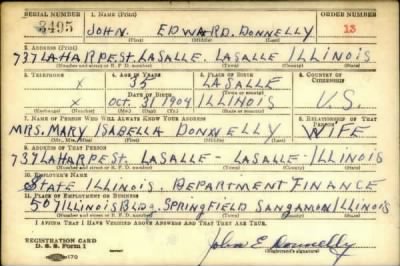 SERIAL NUMBER 1. NAME (Print) ORDER NUMBER
3495 JOHN EDWARD DONNELLY 13
(First) (Middle) (Last)
2. ADDRESS (Print)
737 LAHARPE ST. LASALLE. LASALLE ILLINOIS
(Number and street or R. F. D. number) (Town) (County) (State)
3. TELEPHONE 4. AGE IN YEARS 5. PLACE OF BIRTH 6. COUNTRY OF CITIZENSHIP
X 35 LASALLE
DATE OF BIRTH (Town or county)
X OCT. 31 1904 ILLINOIS U.S.
(Mo.) (Day) (Yr.) (State or country)
7. NAME OF PERSON WHO WILL ALWAYS KNOW YOUR ADDRESS 8. RELATIONSHIP OF THAT PERSON
MRS. MARY ISABELLA DONNELLY WIFE
(Mr., Mrs., Miss) (First) (Middle) (Last)
9. ADDRESS OF THAT PERSON
737 LAHARPE ST. LASALLE - LASALLE - ILLINOIS
(Number and street or R. F. D. number) (Town) (County) (State)
10. EMPLOYER'S NAME
STATE ILLINOIS. DEPARTMENT FINANCE
11. PLACE OF EMPLOYMENT OR BUSINESS
507 ILLINOIS BLDG. SPRINGFIELD SANGAMON ILLINOIS
(Number and street or R. F. D. number) (Town) (County) (State)
I AFFIRM THAT I HAVE VERIFIED ABOVE ANSWERS AND THAT THEY ARE TRUE.
REGISTRATION CARD
D. S. S. Form 1 John E Donnelly
(Registrant's signature)